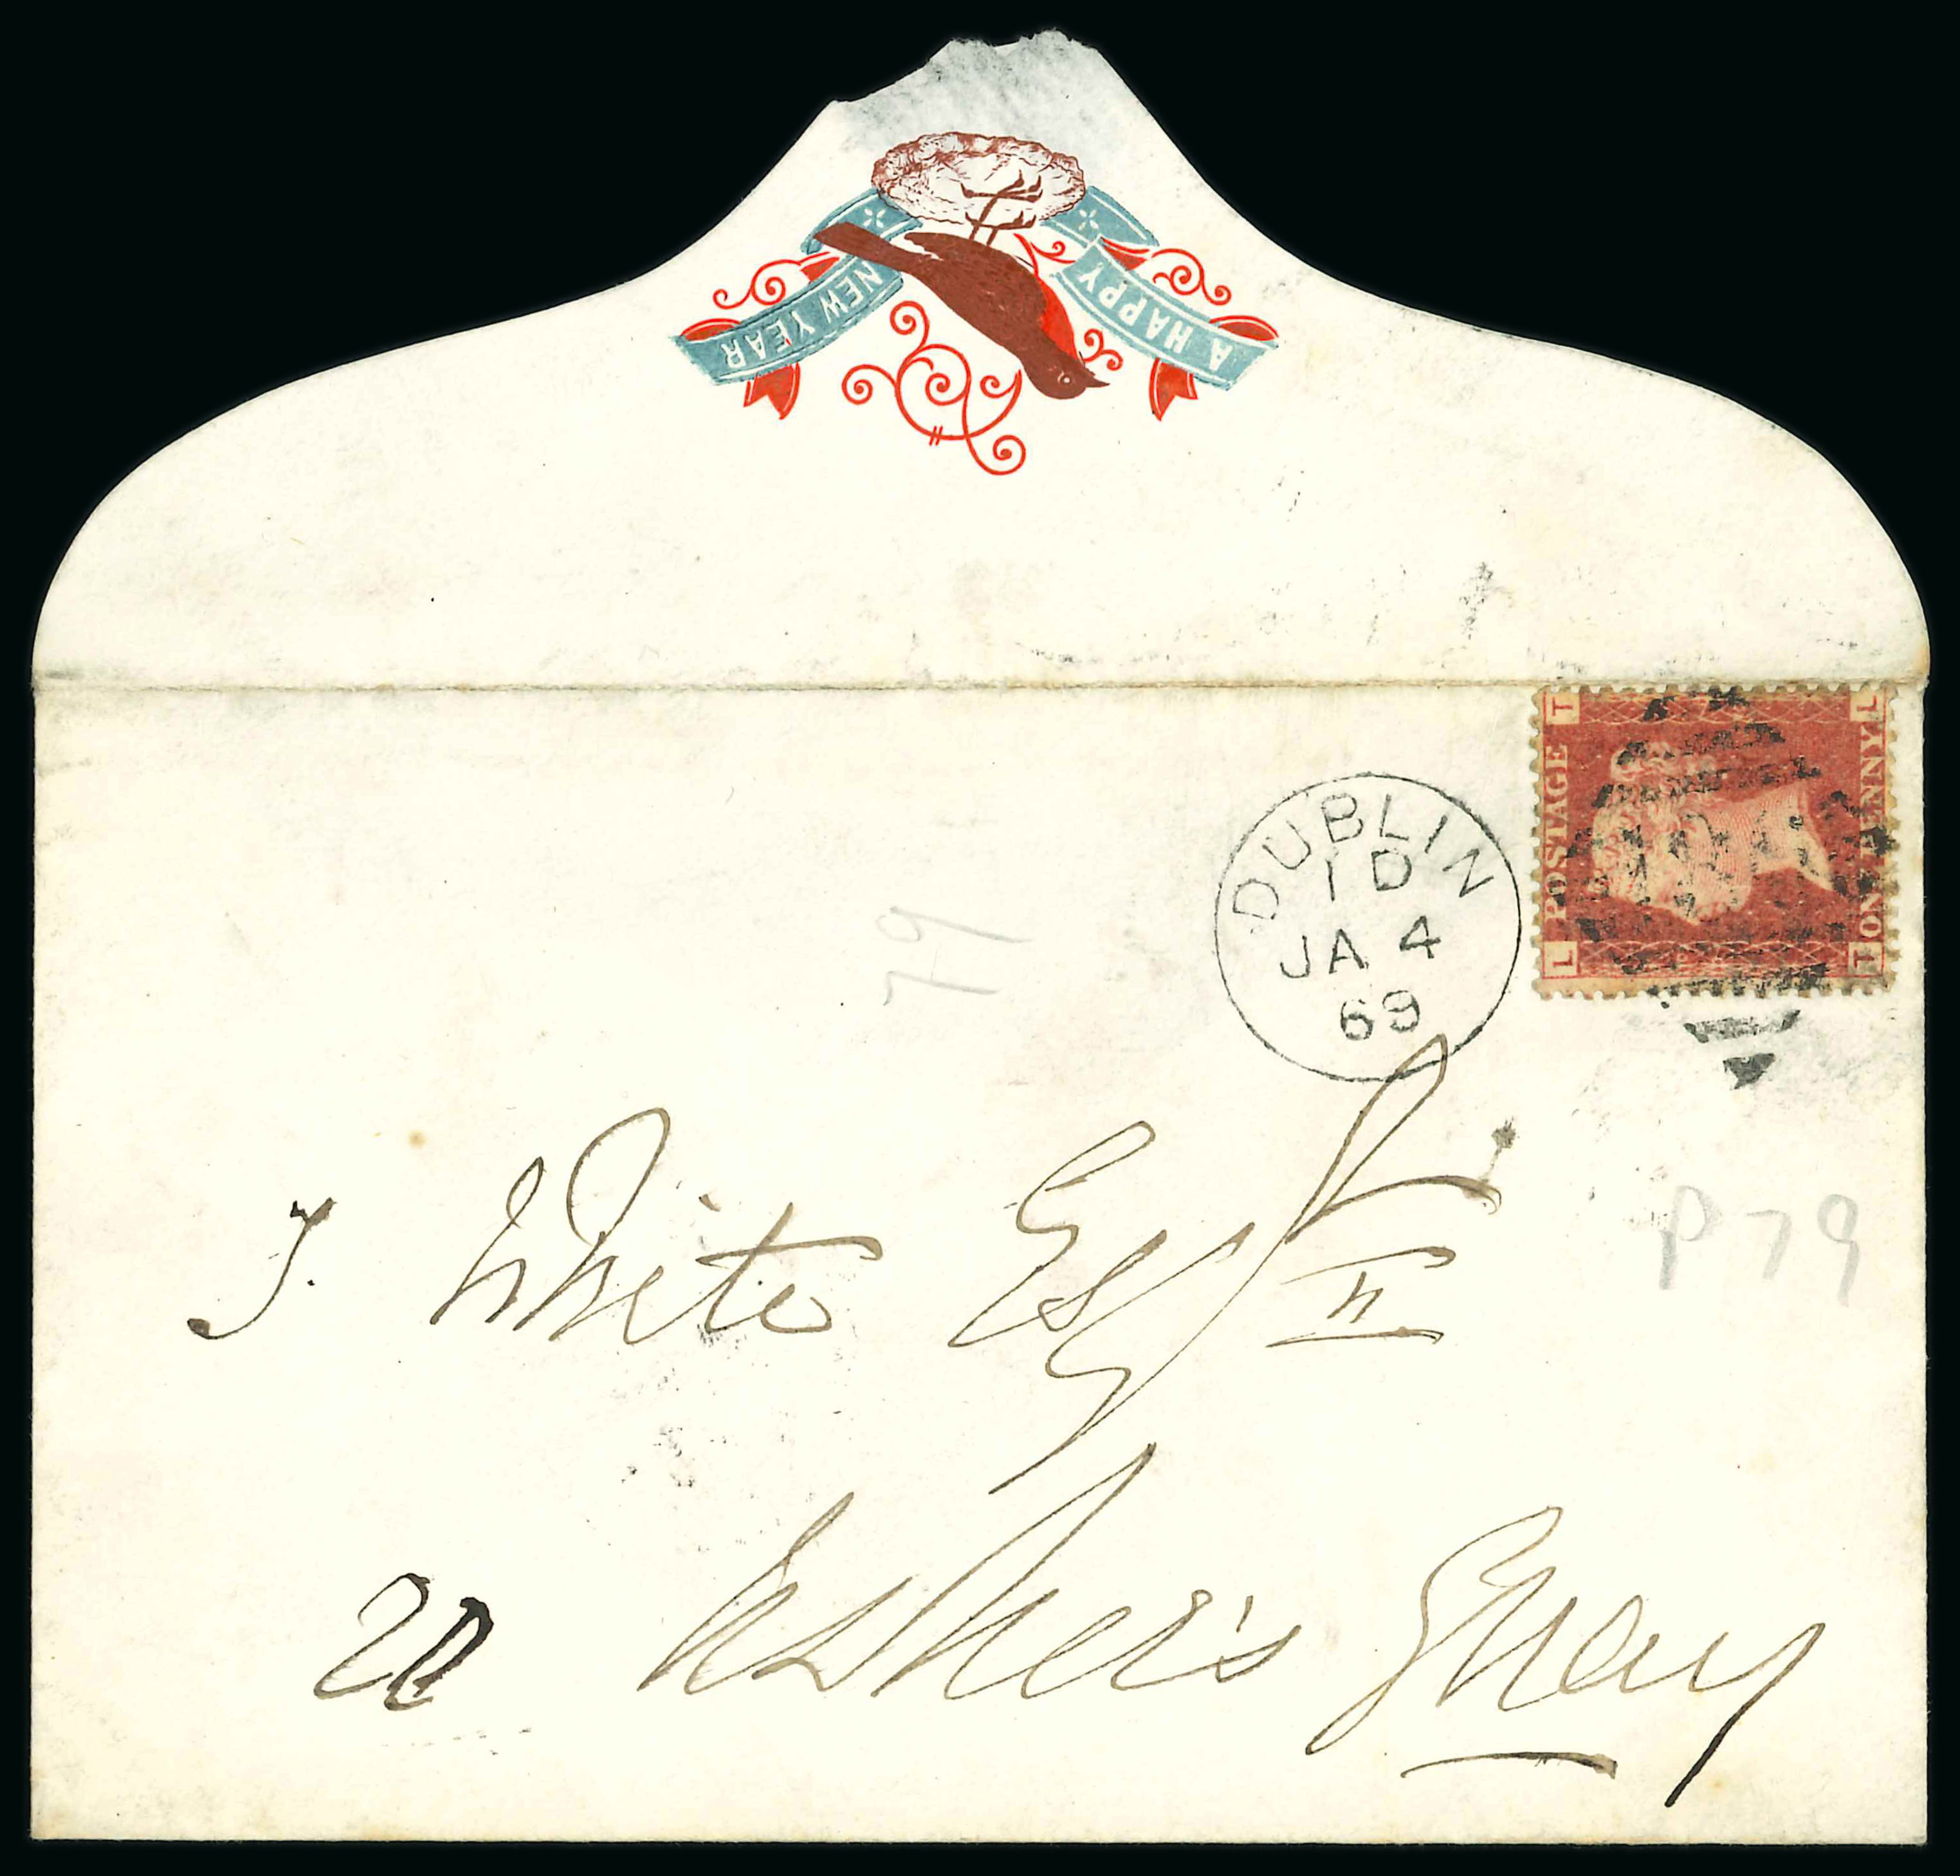 A HAPPY
NEW YEAR
POSTAGE
ONE PENNY
T L
L T
DUBLIN
1 D
JA 4
69
79
P 79
J. White Esqr
20 Usher's Quay